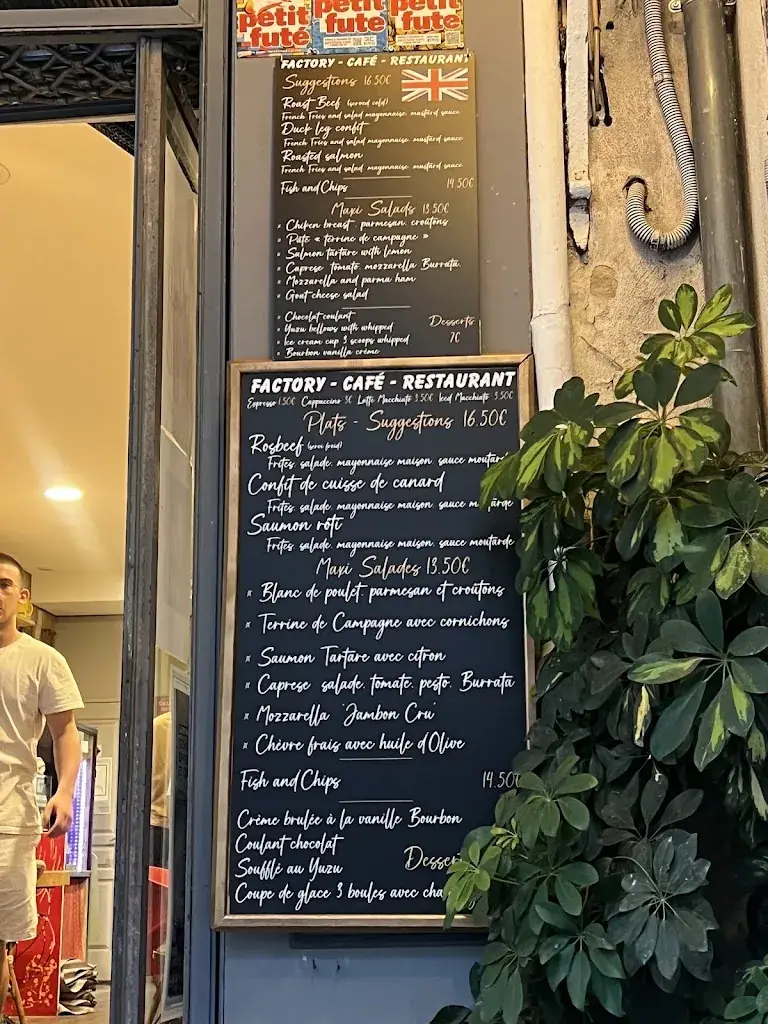 petit futé petit futé petit futé
FACTORY - CAFÉ - RESTAURANT
Suggestions 16.50€
Roast Beef (served cold)
French Fries and salad mayonnaise, mustard sauce
Duck leg confit
French Fries and salad mayonnaise, mustard sauce
Roasted salmon
French Fries and salad mayonnaise, mustard sauce
Fish and Chips 14.50€
Maxi Salads 13.50€
Chiken breast, parmesan, croûtons
Pâté « terrine de campagne »
Salmon tartare with lemon
Caprese, tomato, mozzarella Burrata,
Mozzarella and parma ham
Goat cheese salad
Chocolat coulant
Desserts
Yuzu bellows with whipped
Ice cream cup 3 scoops whipped 7€
Bourbon vanilla crème
FACTORY - CAFÉ - RESTAURANT
Espresso 1.50€ Cappuccino 3€ Latte Macchiato 3.50€ Iced Macchiato 3.50€
Plats - Suggestions 16.50€
Rosbeef (servi froid)
Frites, salade, mayonnaise maison, sauce moutarde
Confit de cuisse de canard
Frites, salade, mayonnaise maison, sauce m tarde
Saumon rôti
Frites, salade, mayonnaise maison, sauce moutarde
Maxi Salades 13.50€
× Blanc de poulet, parmesan et croûtons
× Terrine de Campagne avec cornichons
× Saumon Tartare avec citron
× Caprese salade, tomate, pesto, Burrata
× Mozzarella "Jambon Cru"
× Chèvre frais avec huile d'Olive
Fish and Chips 14.50
Crème brulée à la vanille Bourbon
Coulant chocolat
Soufflé au Yuzu Desser
Coupe de glace 3 boules avec cha